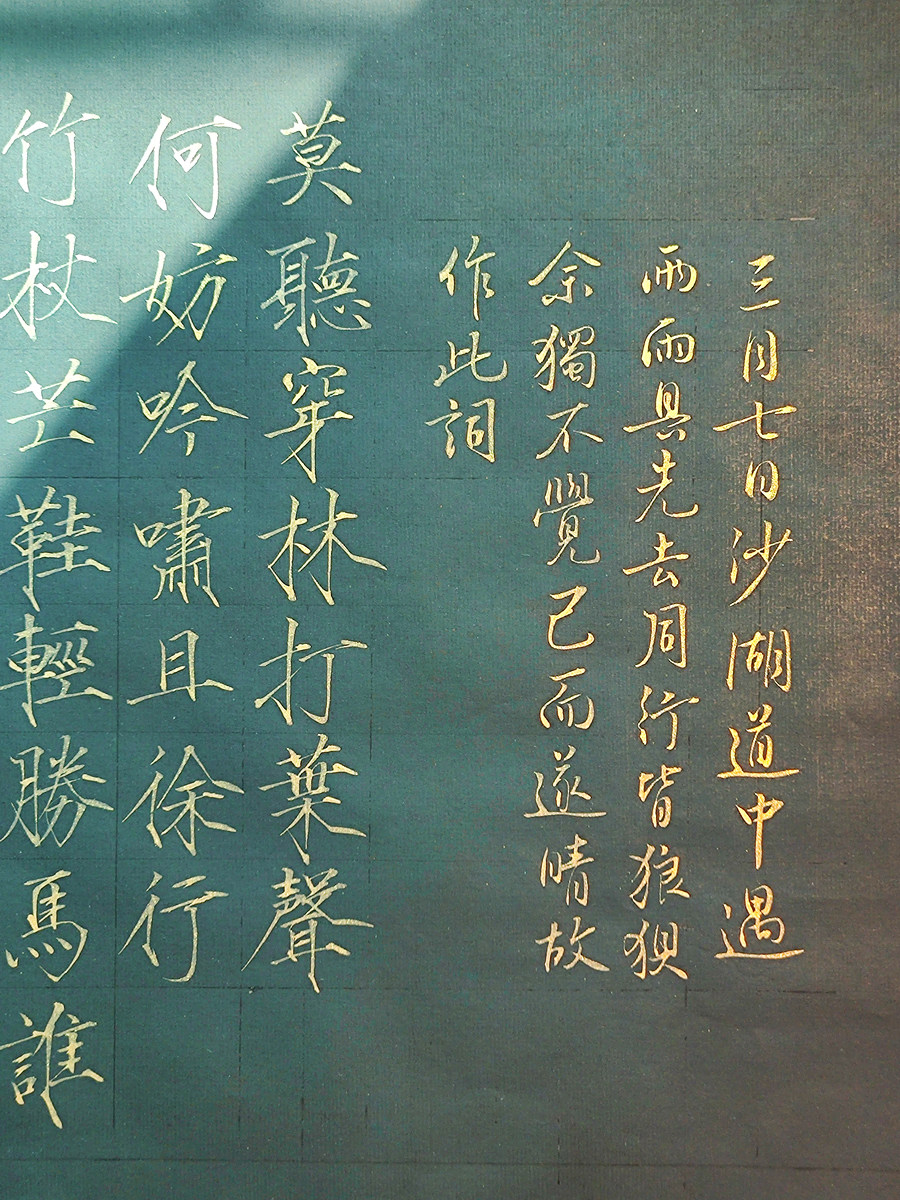 三月七日沙湖道中遇
雨雨具先去同行皆狼狽
余獨不覺已而遂晴故
作此詞
莫聽穿林打葉聲
何妨吟嘯且徐行
竹杖芒鞋輕勝馬誰